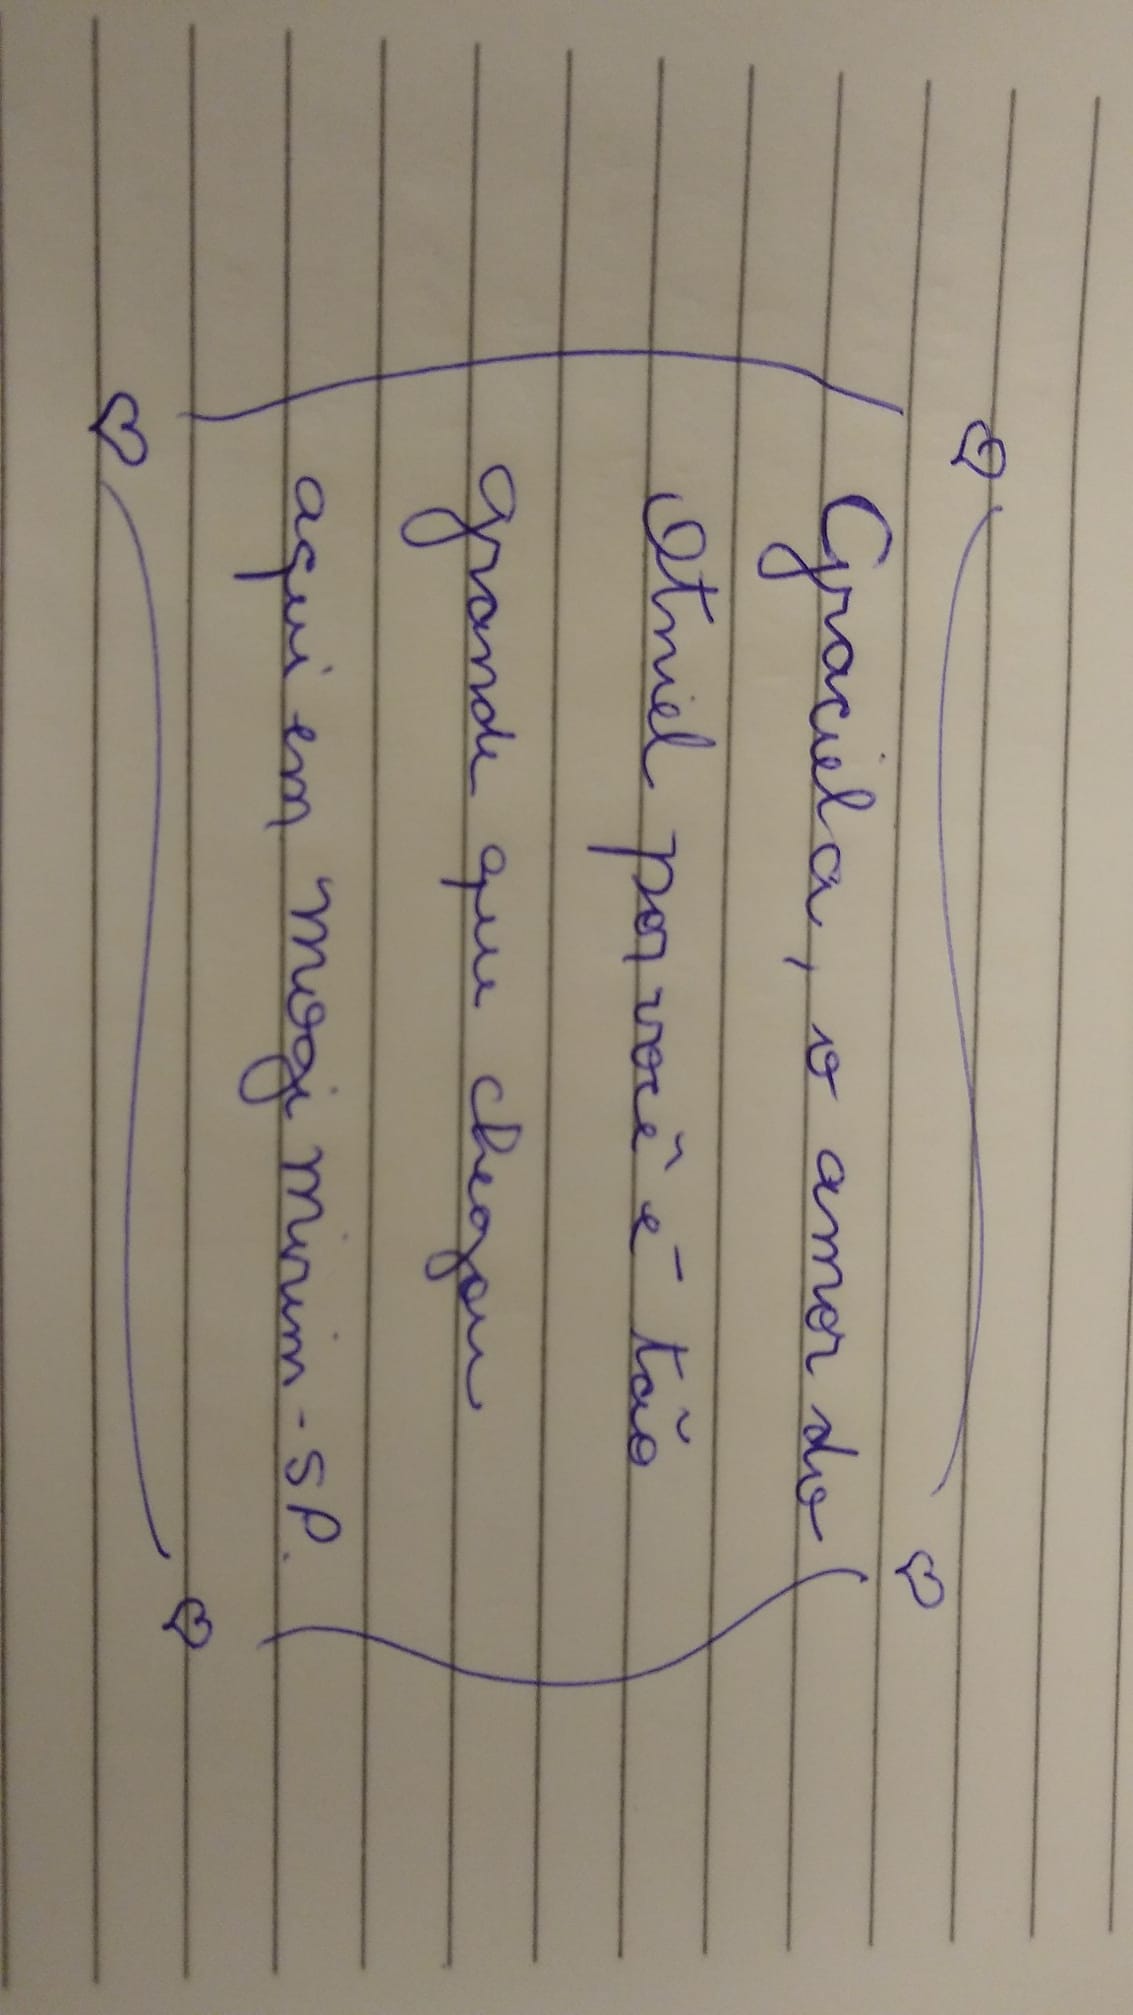 Graciela, o amor do
Otniel por você é tão
grande que chegou
aqui em mogi mirim - SP.